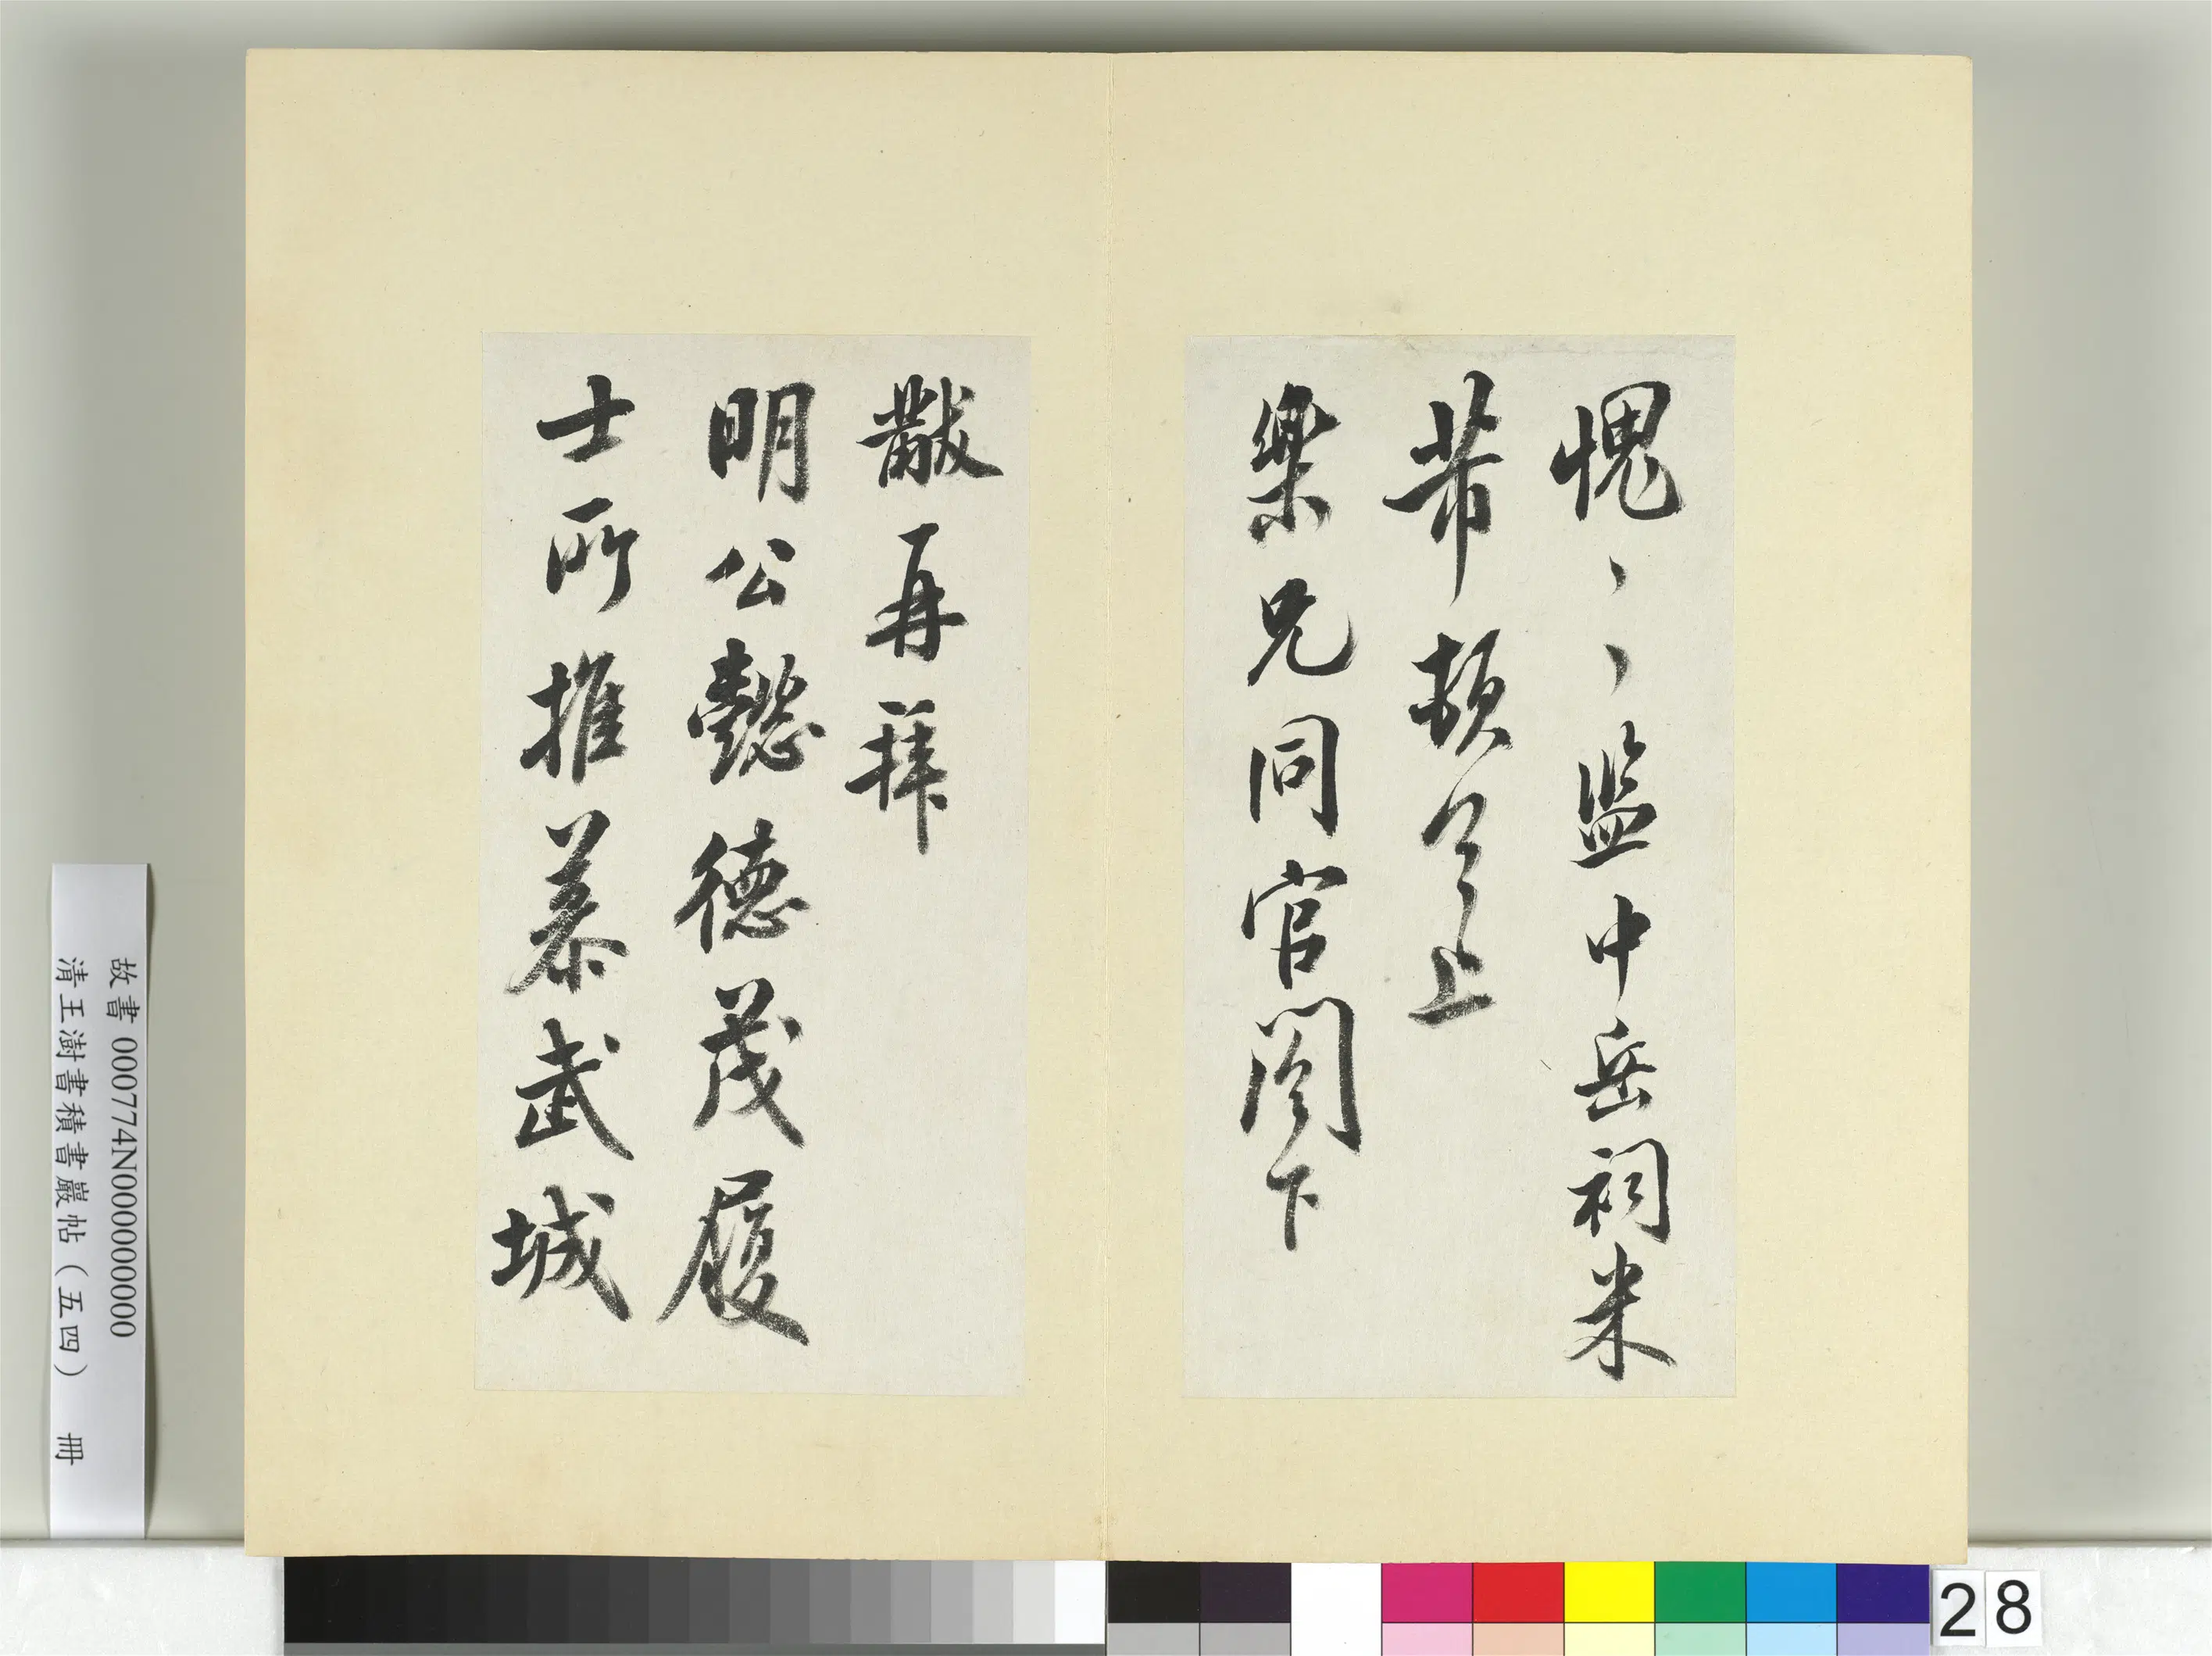 愧〻監中岳祠米
芾頓首上
樂兄同官閣下
黻再拜
明公懿德茂履
士所推慕武城
故書000774N000000000
清王澍書積書巖帖（五四） 冊
28